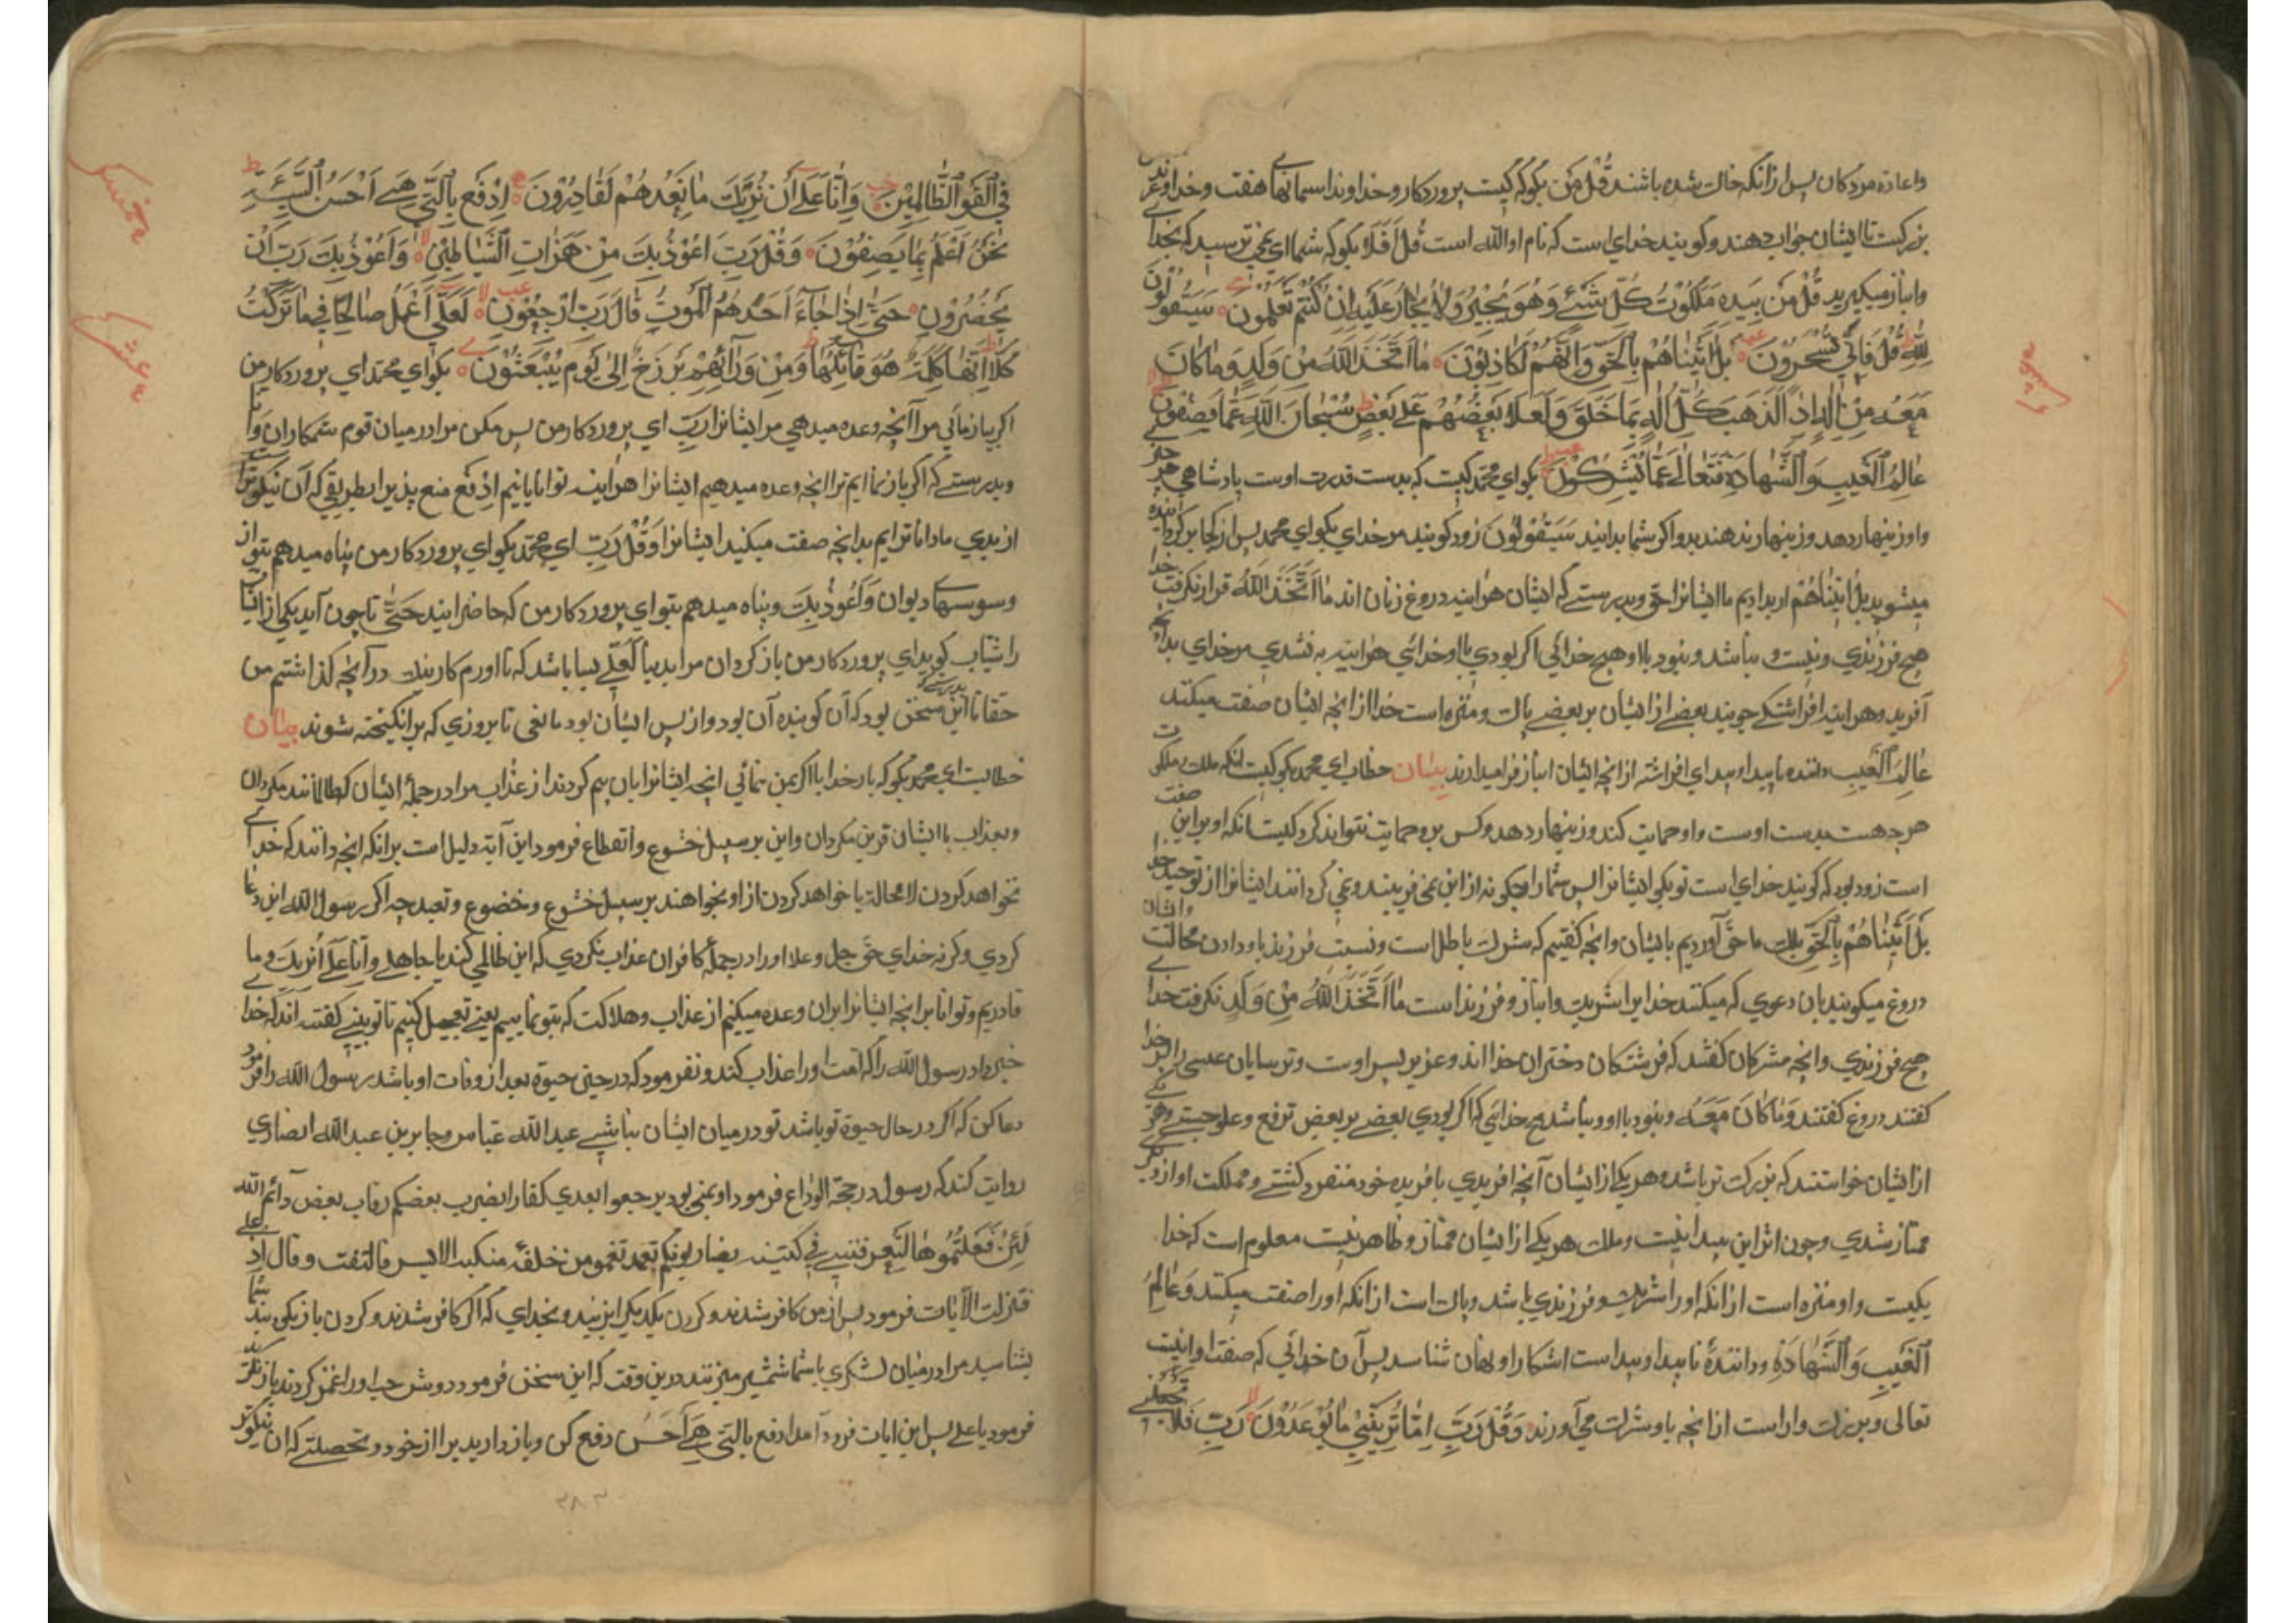 واعاده مردکان پس ازانکه خاك شده باشند قُلْ مَن بکو که کیست پروردکار و خداوند اسمانها هفت و خداوند عرش
بزرکست تا ایشان جواب دهند و کویند خدای است که نام او الله است قُلْ اَفَلَا بکو که شما ای نمی ترسید که بخدای
وانباز میکیرید قُلْ مَنْ بِیَدِهِ مَلَکُوْتُ کُلِّ شَیْءٍ وَهُوَ یُجِیْرُ وَلَا یُجَارُ عَلَیْهِ اِنْ کُنْتُمْ تَعْلَمُوْنَ سَیَقُوْلُوْنَ
لِلّٰهِ قُلْ فَاَنّٰی تُسْحَرُوْنَ بَلْ اَتَیْنَاهُمْ بِالْحَقِّ وَاِنَّهُمْ لَکَاذِبُوْنَ مَا اتَّخَذَ اللّٰهُ مِنْ وَلَدٍ وَمَا کَانَ
مَعَهُ مِنْ اِلٰهٍ اِذًا لَذَهَبَ کُلُّ اِلٰهٍ بِمَا خَلَقَ وَلَعَلَا بَعْضُهُمْ عَلٰی بَعْضٍ سُبْحَانَ اللّٰهِ عَمَّا یَصِفُوْنَ
عَالِمِ الْغَیْبِ وَالشَّهَادَةِ فَتَعَالٰی عَمَّا یُشْرِکُوْنَ بکو ای محمد کیست که بدست قدرت اوست پادشاهی هر چیزی
واو زینهار دهد و زینهار ندهند برو اکر شما بدانید سَیَقُوْلُوْنَ زود کویند مر خدای بکو ای محمد پس از کجا بر کردانیده
میشوید بَلْ اَتَیْنَاهُمْ ار بدادیم ما ایشانرا حق و بدرستی که ایشان هر اینه دروغ زنان اند مَا اتَّخَذَ اللّٰهُ فرا نکرفت خدا
هیچ فرزندی و نیست و نباشد و نبود با او هیچ خدائی اکر بودی با او خدائی هر اینه بشدی هر خدای بدانچه
آفرید و هر اینه افراشتکی جویند بعضی از ایشان بر بعضی پاك و منزه است خدا از انچه ایشان صفت میکنند
عَالِمِ الْغَیْبِ داننده ناپیدا و پیدا ای افراشته از انچه ایشان انباز فرا میدارند بیان خطاب ای محمد بکو کیست انکه ملك و ملکوت
هر چه هست بدست اوست و او حمایت کند و زینهار دهد و کس برو حمایت نتواند کرد کیست انکه او بر این صفت
است زود بود که کویند خدای است تو بکو ایشانرا پس شما را چکونه از این نمی فریبند و نمی کردانند ایشانرا از توحید خدا
بَلْ اَتَیْنَاهُمْ بِالْحَقِّ بلك ما حق آوردیم بایشان وانچه کفتیم که شرك باطل است و نسبت فرزند باو دادن محالست وایشان
دروغ میکویند بان دعوی که میکنند خدایرا شریك و انباز و فرزند است مَا اتَّخَذَ اللّٰهُ مِنْ وَلَدٍ نکرفت خدای
هیچ فرزندی وانچه مشرکان کفتند که فرشتکان دختران خدا اند و عزیر پسر اوست و ترسایان عیسی را پسر خدا
کفتند دروغ کفتند وَمَا کَانَ مَعَهُ و نبود با او و نباشد هیچ خدائی که اکر بودی بعضی بر بعض ترفع و علو جستی و هر یکی
از ایشان خواستند که بزرکتر باشد و هر یکی از ایشان آنچه افریدی با فریده خود منفرد کشتی و مملکت او از دیکری
ممتاز شدی و چون اثر این پیدا نیست و ملك هر یکی از ایشان ممتاز و ظاهر نیست معلوم است که خدا
یکیست و او منزه است از انکه او را شریك و فرزندی باشد و پاك است از انکه او را صفت میکنند وَعَالِمُ
الْغَیْبِ وَالشَّهَادَةِ و دانندهٔ ناپیدا و پیداست اشکارا و نهان شناسد پس آن خدائی که صفت او اینست
تعالی و بزرك وار است از انچه باو شرك می آورند وَقُلْ رَبِّ اِمَّا تُرِیَنِّیْ مَا یُوْعَدُوْنَ رَبِّ فَلَا تَجْعَلْنِیْ
فِی الْقَوْمِ الظَّالِمِیْنَ وَاِنَّا عَلٰی اَنْ نُرِیَكَ مَا نَعِدُهُمْ لَقَادِرُوْنَ اِدْفَعْ بِالَّتِیْ هِیَ اَحْسَنُ السَّیِّئَةَ
نَحْنُ اَعْلَمُ بِمَا یَصِفُوْنَ وَقُلْ رَبِّ اَعُوْذُ بِكَ مِنْ هَمَزَاتِ الشَّیَاطِیْنِ وَاَعُوْذُ بِكَ رَبِّ اَنْ
یَحْضُرُوْنِ حَتّٰی اِذَا جَاءَ اَحَدَهُمُ الْمَوْتُ قَالَ رَبِّ ارْجِعُوْنِ لَعَلِّیْ اَعْمَلُ صَالِحًا فِیْمَا تَرَکْتُ
کَلَّا اِنَّهَا کَلِمَةٌ هُوَ قَائِلُهَا وَمِنْ وَرَائِهِمْ بَرْزَخٌ اِلٰی یَوْمِ یُبْعَثُوْنَ بکو ای محمد ای پروردکار من
اکر باز نمائی مرا آنچه وعده میدهی مر ایشانرا رَبِّ ای پروردکار من پس مکن مرا در میان قوم ستمکاران وَاِنَّا
و بدرستی که اکر باز نمائیم ترا انچه وعده میدهیم ایشانرا هر اینه توانایانیم اِدْفَعْ منع پذیر بطریقی که آن نیکوتر است
از بدی ما داناترایم بدانچه صفت میکنید ایشانرا وَقُلْ رَبِّ ای محمد بکو ای پروردکار من پناه میدهم بتو از
وسوسهای دیوان وَاَعُوْذُ بِكَ و پناه میدهم بتو ای پروردکار من که حاضر ایند حَتّٰی تا چون آید یکی از ایشان
را شتاب کوید ای پروردکار من باز کردان مرا بدنیا لَعَلِّیْ بسا باشد که نا اورم کار نیك در آنچه کذاشتم من
حقا نا این سخن بدرستی که بود که آن کوینده آن بود و از پس ایشان بود مانعی تا بروزی که بر انکیخته شوند بیان
خطابست ای محمد بکو که بار خدایا اکر بمن نمائی انچه ایشانرا بان بیم کردند از عذاب مرا در جملهٔ ایشان که ظالمانند مکردان
و بعذاب با ایشان قرین مکردان و این بر سبیل خشوع و انقطاع فرمود این آیة دلیل است برانکه انچه دانند که خدای
نخواهد کردن لا محالة یا خواهد کردن از او بخواهند بر سبیل خشوع و خضوع و تعبد چه اکر رسول الله این دعا
کردی و کرنه خدای حق جل و علا او را در جملهٔ کافران عذاب نکردی که این ظالمی کند یا جاهلی وَاِنَّا عَلٰی اَنْ نُرِیَكَ و ما
قادریم و توانا بر انچه ایشانرا بران وعده میکنیم از عذاب و هلاکت که بتو نماییم یعنی تعجیل کنیم تا تو بینی کفته اند که خدای
خبر داد رسول الله را که امت او را عذاب کند و نفرمود که در حین حیوة بعد از وفات او باشد رسول الله را فرمود
دعا کن که اکر در حال حیوة تو باشد تو در میان ایشان نباشی عبد الله عباس و جابر بن عبد الله انصاری
روایت کند که رسول در حجة الوداع فرمود و بمنی بود یرجعوا بعدی کفارا یضرب بعضکم رقاب بعض دائم الله
لَئِنْ فَعَلْتُمُوْهَا لَتَعْرِفُنَّنِیْ فِیْ کتیبة یضاربونکم ثم من خلفه منکبه الایسر فالتفت و قال او علی
فنزلت الآیات فرمود پس از من کافر شدند و کردن یکدیکر ا بزنید و بخدای که اکر کافر شدند و کردن باز یکی بزنید شما
بشناسید مرا در میان لشکری با شما شمشیر میزنند درین وقت که این سخن فرمود دوش چپ او را غمز کردند باز نکرید
فرمود یا علی پس این ایات فرود آمد ادفع بالتی هِیَ اَحْسَنُ دفع کن و باز دارید بدیرا از خود بخصلتی که ان نیکوتر
۳۸۳